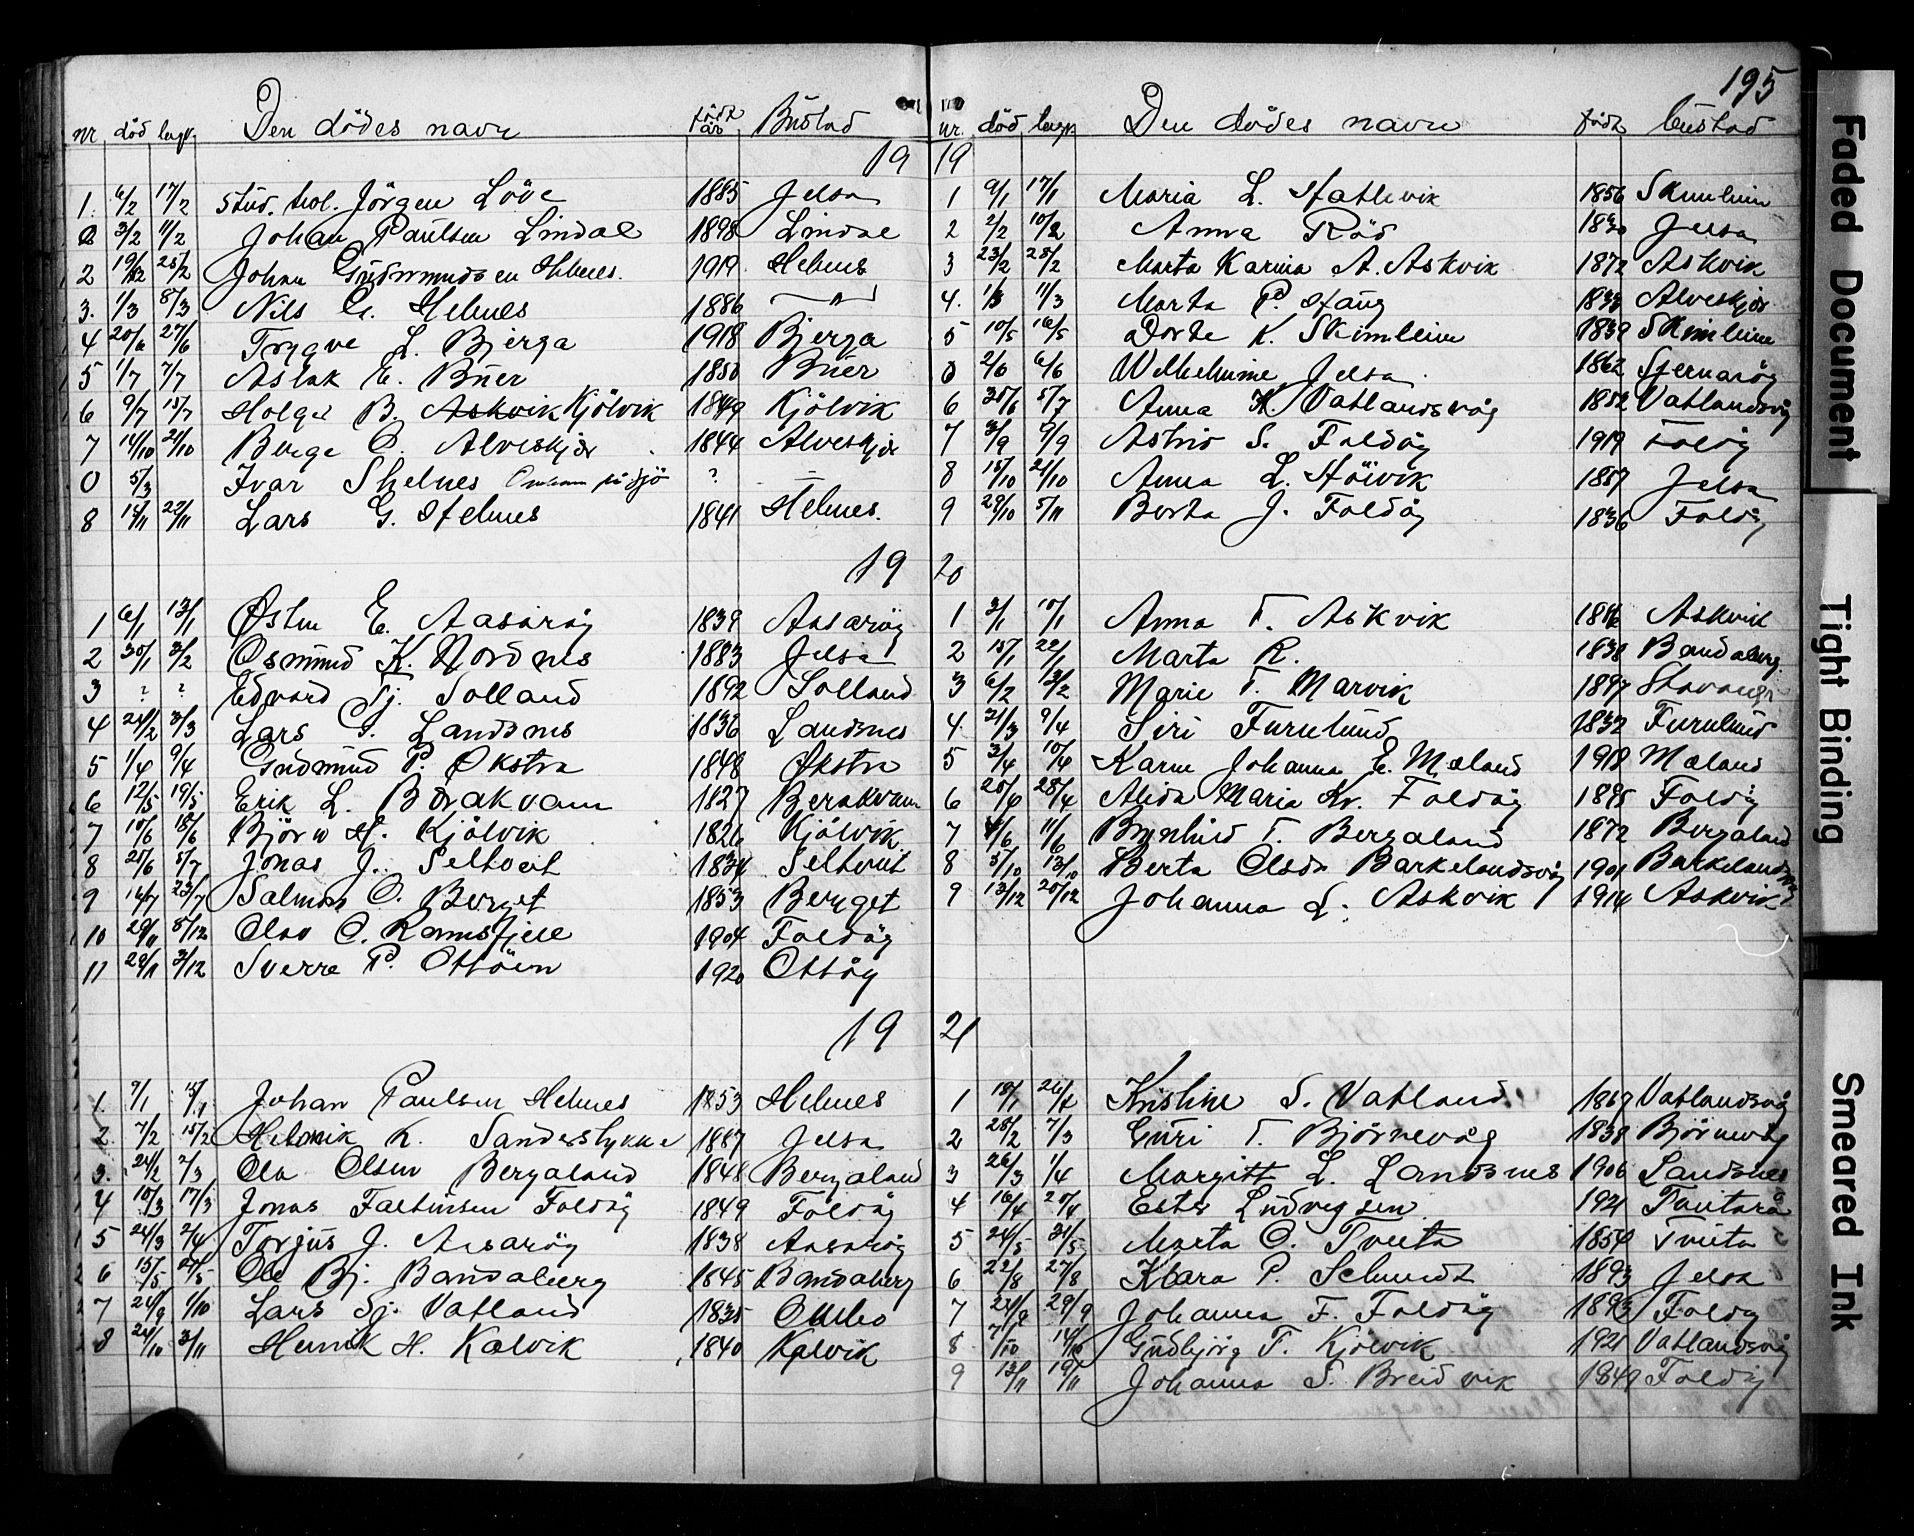 195
nr. död begr. Den dödes navn född år Bustad
19
1. 6/2 17/2 stud. teol. Jörgen Löve 1885 Jelsa
0 3/2 11/2 Johan Paulsen Lindal 1898 Lindal
2 19/2 25/2 Johan Gudmundsen Helnes. 1919 Helnes
3. 1/3 8/3 Nils G. Helnes 1886 — " —
4 20/6 27/6 Trygve L. Bjerga 1918 Bjerga
5 1/7 7/7 Aslak E. Buer 1850 Buer
6 9/7 15/7 Holger B. Askvik Kjölvik 1849 Kjölvik
7 14/10 21/10 Berge O. Alveskjer 1844 Alveskjer
0 5/3 Ivar Skelnes Omkom på sjö ? –
8 14/11 22/11 Lars G. Helnes 1841 Helnes.
19
1 6/1 13/1 Østen E. Aasarög 1839 Aasaröy
2 30/1 3/2 Osmund K. Nordnes 1883 Jelsa
3 ? ? Edvard Tj. Solland 1892 Solland
4 24/2 3/3 Lars G. Landsnes 1836 Landsnes
5 1/4 9/4 Gudmund P. Økstra 1848 Økstra
6 12/5 19/5 Erik L. Brakvam 1827 Berakvam
7 10/6 18/6 Björn H. Kjölvik 1826 Kjölvik
8 25/6 5/7 Jonas J. Seltveit 1834 Seltveit
9 16/7 23/7 Salmon O. Berget 1853 Berget
10 29/11 8/12 Olav O. Ramsfjell 1904 Foldöy
11 29/11 3/12 Sverre P. Ottöen 1920 Ottöy
19
1. 7/1 15/1 Johan Paulsen Helnes 1853 Helnes
2. 7/2 15/2 Henrik K. Sanderstykke 1887 Jelsa
3. 24/2 2/3 Ola Olsen Bergaland 1848 Bergaland
4 10/3 17/3 Jonas Faltinsen Foldöy 1849 Foldöy
5 24/3 2/4 Torjus J. Aasaröy 1838 Aasaröy
6 15/5 21/5 Ole Bj. Bandaberg 1845 Bandaberg
7 24/9 1/10 Lars Sj. Vatland 1835 Ombo
8 24/10 3/11 Henrik H. Kalvik 1840 Kalvik
nr. död begr. Den dödes navn född Bustad
19
1 9/1 17/1 Maria L. Hatlevik 1856 Skimlein
2 2/2 10/2 Anna Röd 1830 Jelsa
3 23/2 28/2 Marta Karina A. Askvik 1872 Askvik
4. 1/3 11/3 Marta P. Haug 1833 Alveskjer
5 10/5 16/5 Dorte K. Skimlein 1839 Skimlein
0 2/6 6/6 Wilhelmine Jelsa 1862 Sjernaröy
6 30/6 5/7 Anna K. Vatlandsvåg 1852 Vatlandsvåg
7 3/9 9/9 Astrid S. Foldöy 1919 Foldöy
8 15/10 21/10 Anna L. Höivik 1857 Jelsa
9 29/10 5/11 Berta J. Foldöy 1836 Foldöy
20
1 3/1 10/1 Anna T. Askvik 1886 Askvik
2 15/1 22/1 Marta R. 1838 Bandaberg
3 6/2 13/2 Marie T. Marvik 1897 Stavanger
4. 31/3 9/4 Siri Furulund 1832 Furulund
5 3/4 10/4 Karen Johanna E. Mæland 1918 Mæland
6 20/4 28/4 Alida Maria Kr. Foldöy 1895 Foldöy
7 4/6 11/6 Brynhild T. Bergaland 1872 Bergaland
8 5/10 13/10 Berta Olsda Barkelandsvåg 1901 Barkelandsvåg
9 13/12 20/12 Johanna L. Askvik 1914 Askvik
21
1 18/1 26/1 Kristine S. Vatland 1867 Vatlandsvåg
2 28/2 7/3 Guri T. Björnevåg 1838 Björnevåg
3 26/3 1/4 Margitt L. Landsnes 1906 Landsnes
4 16/4 20/4 Ester Ludvigsen 1921 Tantarå
5 24/5 31/5 Marta O. Tveita 1854 Tveita
6 22/8 27/8 Klara P. Schmidt 1893 Jelsa
7 22/9 29/9 Johanna F. Foldöy 1893 Foldöy
8 7/10 14/10 Gudbjörg T. Kjölvik 1921 Vatlandsvåg
9 13/11 19/11 Johanna S. Breidvik 1849 Foldöy
Faded Document
Tight Binding
Smeared Ink